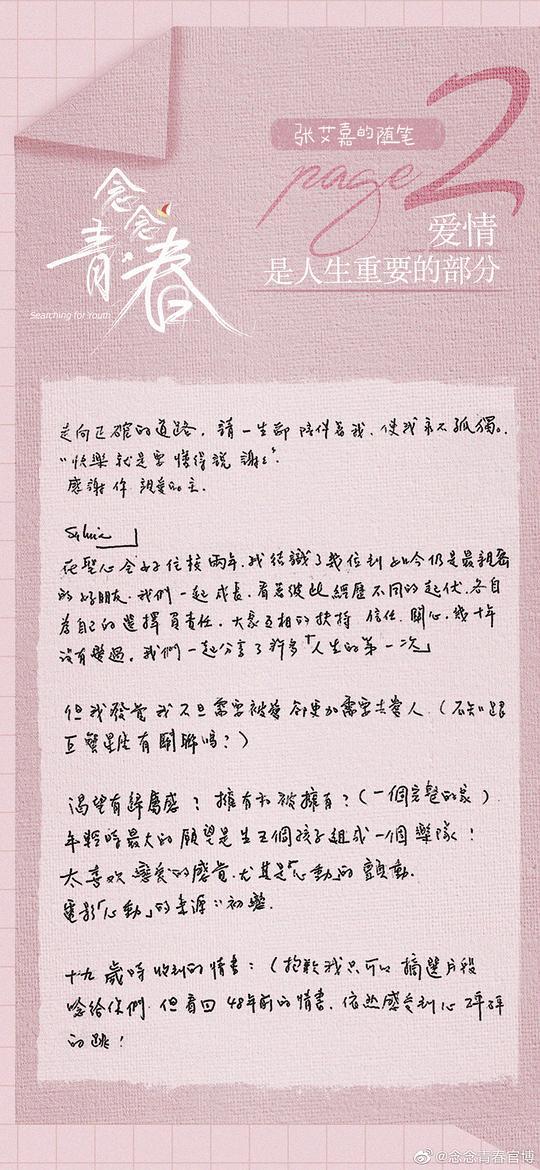 张艾嘉的随笔
page 2
念念青春
爱情
是人生重要的部分
Searching for Youth
走向正確的道路，請一生都陪伴着我，使我永不孤獨。
"快樂就是要懂得說謝謝"
感謝你 親愛的主.
Sylvia
在聖心念女子住校兩年，我結識了幾位到如今仍是最親密
的好朋友，我們一起成長，看着彼此經歷不同的起伏，各自
為自己的選擇負責任，大家互相的扶持 信任 關心，幾十年
沒有變過，我們一起分享了許多「人生的第一次」
但我發覺我不但需要被愛 卻更加需要去愛人（不知跟
巨蟹星座有關聯嗎？）
渴望有歸屬感？擁有和被擁有？（一個完整的家）
年輕時最大的願望是生五個孩子組成一個樂隊！
太喜歡戀愛的感覺，尤其是「心動」的顫動.
電影「心動」的來源：初戀.
十九歲時收到的情書：（抱歉我只可以摘選片段
唸給你們，但看回48年前的情書，依然感受到心砰砰
的跳！
@念念青春官博